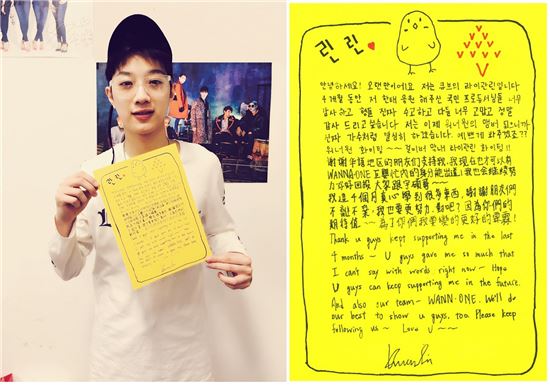 린린
안녕하세요! 오랜만이에요 저는 큐브의 라이관린입니다
4개월 동안 저 한테 응원 해주신 국민 프로듀서님들 너무
감사 하고 형들 진짜 수고하고 다들 너무 고맙고 정말
감사 드리고 싶습니다 저는 이제 워너원의 멤버 됐으니까
진짜 가수처럼 열심히 하겠습니다. 예쁘게 봐주겠죠??
워너원 화이팅 ~~ 라이관린 화이팅!!
謝謝 地區的朋友们支持我,我現在才可以有
WANNA-ONE 出道!我也會繼續努
力好好回報大家
我這4個月真心學到很多東西,謝謝朋友們
不離不棄,我也要更努力,對吧?因為你們的
期待值,~~為了你們我要變的更好的電霸!
Thank u guys kept supporting me in the last
4 months ~ U guys gave me so much that
I can't say with words right now ~ Hope
U guys can keep supporting me in the future.
And also our team - WANN·ONE. We'll do
our best to show u guys, too. Please keep
following us ~ Love U ~~